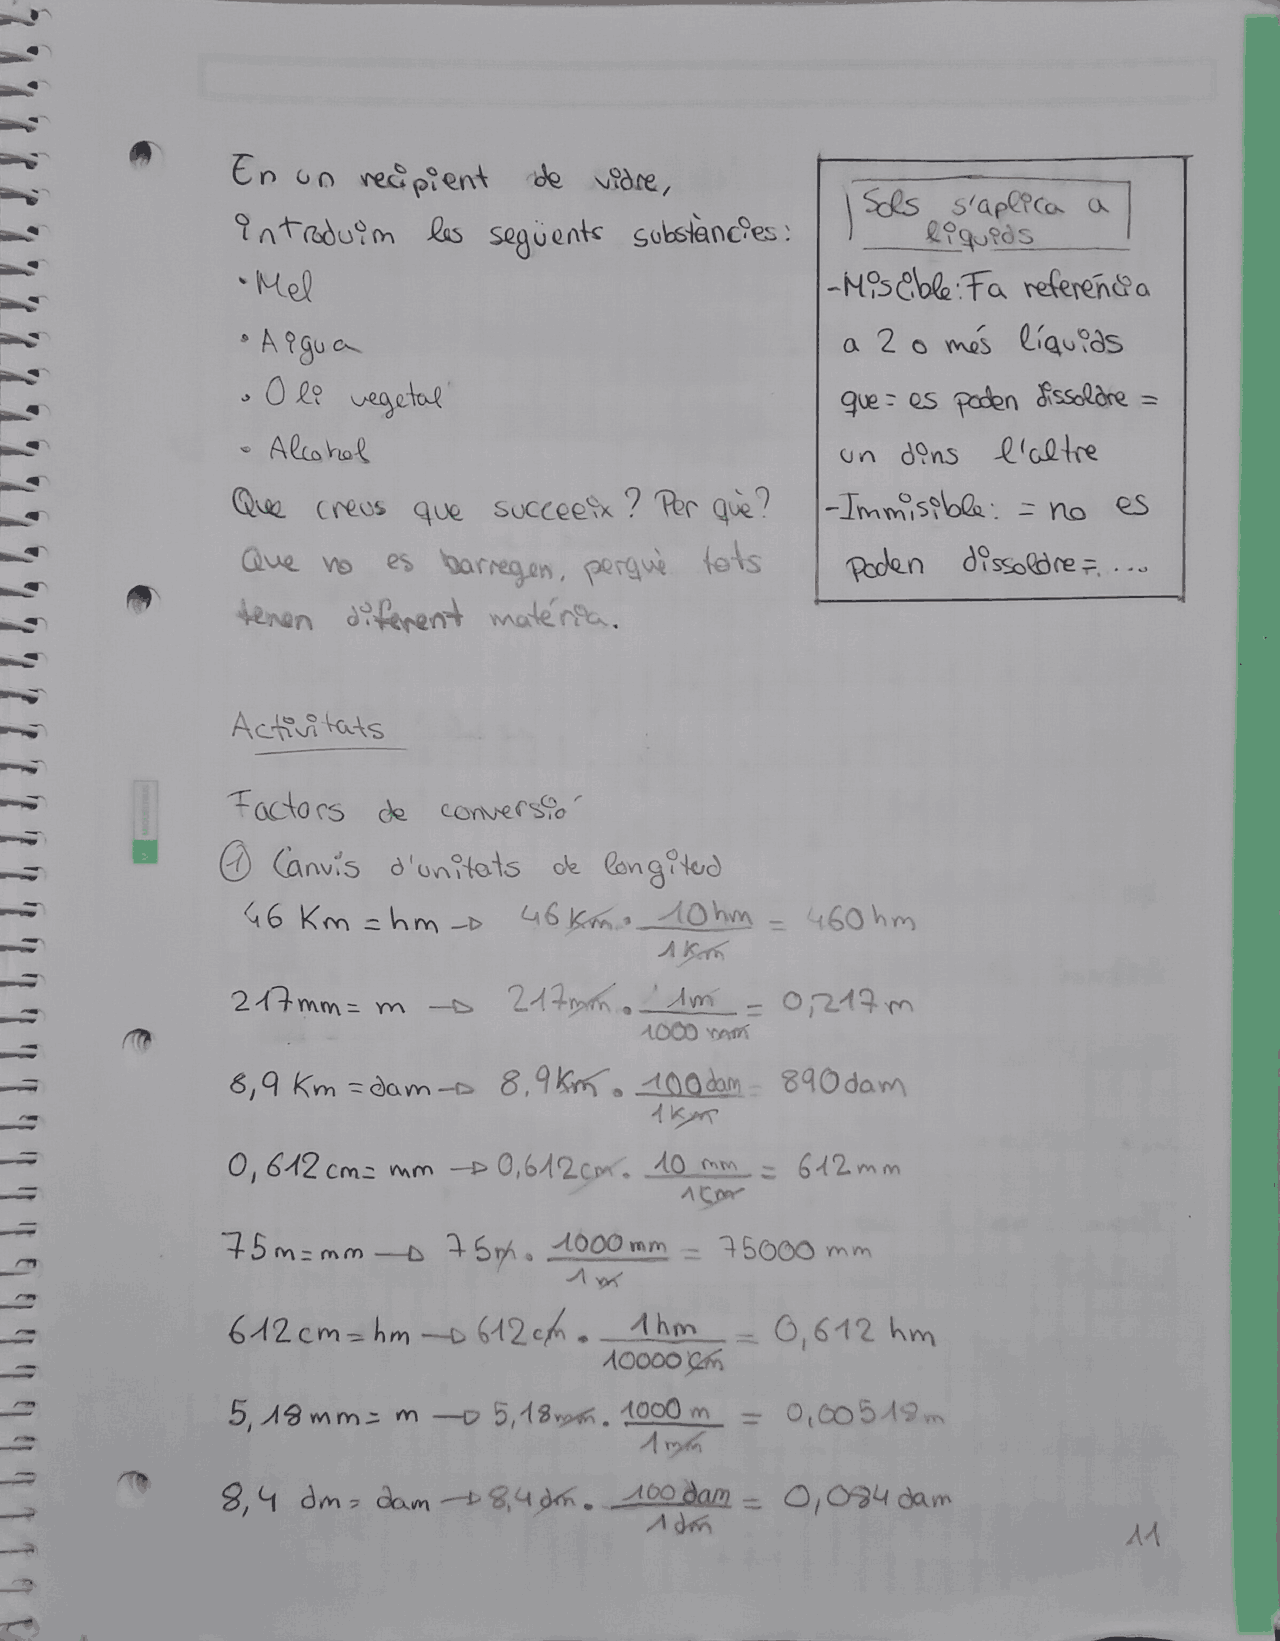 En un recipient de vidre,
introduim les següents substàncies:
• Mel
• Aigua
• Oli vegetal
• Alcohol
Que creus que succeeix? Per què?
Que no es barregen, perquè tots
tenen diferent matéria.
Sols s'aplica a
líquids
-Miscible: Fa referéncia
a 2 o més líquids
que = es poden dissoldre =
un dins l'altre
-Immisible: = no es
poden dissoldre = ...
Activitats
Factors de conversió
① Canvis d'unitats de longitud
46 Km = hm → 46 Km · 10 hm / 1 Km = 460 hm
217 mm = m → 217 mm · 1 m / 1000 mm = 0,217 m
8,9 Km = dam → 8,9 Km · 100 dam / 1 Km = 890 dam
0,612 cm = mm → 0,612 cm · 10 mm / 1 cm = 612 mm
75 m = mm → 75 m · 1000 mm / 1 m = 75000 mm
612 cm = hm → 612 cm · 1 hm / 10000 cm = 0,612 hm
5,18 mm = m → 5,18 mm · 1000 m / 1 mm = 0,00518 m
8,4 dm = dam → 8,4 dm · 100 dam / 1 dm = 0,084 dam
11